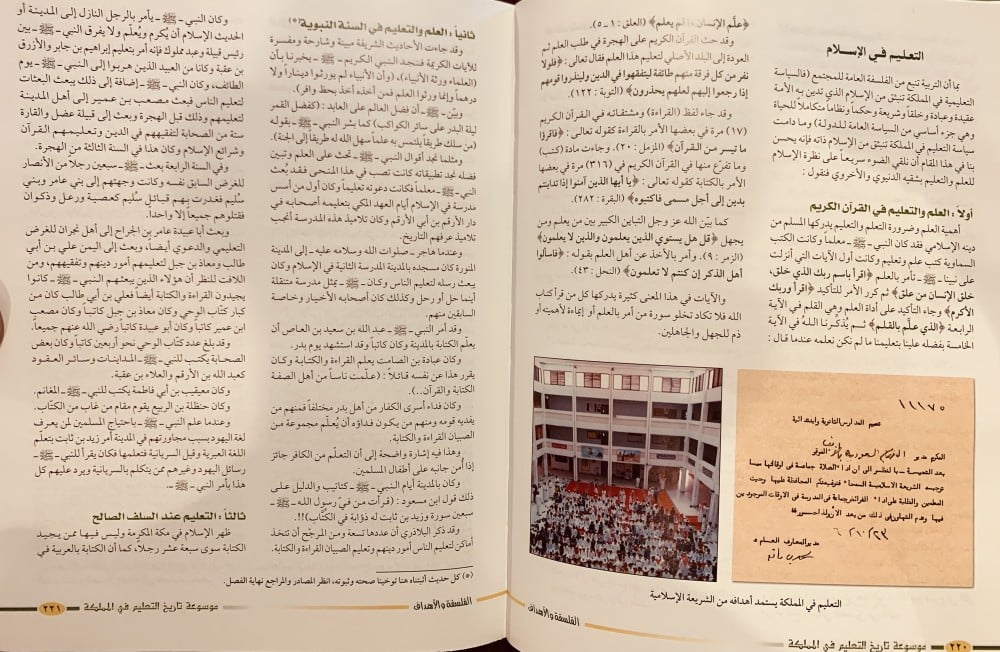 التعليم في الإسلام
بما أن التربية تنبع من الفلسفة العامة للمجتمع (فالسياسة
التعليمية في المملكة تنبثق من الإسلام الذي تدين به الأمة
عقيدة وعبادة وخلقاً وشريعة وحكماً ونظاماً متكاملاً للحياة
وهي جزء أساسي من السياسة العامة للدولة) وما دامت
سياسة التعليم في المملكة تنبثق من الإسلام ذاته فإنه يحسن
بنا في هذا المقام أن نلقي الضوء سريعاً على نظرة الإسلام
للعلم والتعليم بشقيه الدنيوي والأخروي فنقول :
أولاً : العلم والتعليم في القرآن الكريم
أهمية العلم وضرورة التعلم والتعليم يدركها المسلم من
دينه الإسلامي فقد كان النبي ـ ﷺ ـ معلماً وكانت الكتب
السماوية كتب علم وتعليم وكانت أول الآيات التي أنزلت
على نبينا ـ ﷺ ـ تأمر بالعلم ﴿اقرأ باسم ربك الذي خلق،
خلق الإنسان من علق﴾ ثم كرر الأمر للتأكيد ﴿اقرأ وربك
الأكرم﴾ وجاء التأكيد على أداة العلم وهي القلم في الآية
الرابعة ﴿الذي علّم بالقلم﴾ ثم يُذكّرنا الله في الآية
الخامسة بفضله علينا بتعليمنا ما لم نكن نعلمه عندما قال :
﴿علّم الإنسان ما لم يعلم﴾ (العلق : ١ ـ ٥).
وقد حث القرآن الكريم على الهجرة في طلب العلم ثم
العودة إلى البلد الأصلي لتعليم هذا العلم فقال تعالى : ﴿فلولا
نفر من كل فرقة منهم طائفة ليتفقهوا في الدين ولينذروا قومهم
إذا رجعوا إليهم لعلهم يحذرون﴾ (التوبة : ١٢٢).
وقد جاء لفظ (القراءة) ومشتقاته في القرآن الكريم
(١٧) مرة في بعضها الأمر بالقراءة كقوله تعالى : ﴿فاقرؤا
ما تيسر من القرآن﴾ (المزمل : ٢٠). وجاءت مادة (كتب)
وما تفرّع منها في القرآن الكريم في (٣١٦) مرة في بعضها
الأمر بالكتابة كقوله تعالى : ﴿يا أيها الذين آمنوا إذا تداينتم
بدين إلى أجل مسمى فاكتبوه﴾ (البقرة : ٢٨٢).
كما بيّن الله عز وجل التباين الكبير بين من يعلم ومن
يجهل ﴿قل هل يستوي الذين يعلمون والذين لا يعلمون﴾
(الزمر : ٩). وأمر بالأخذ عن أهل العلم بقوله : ﴿فاسألوا
أهل الذكر إن كنتم لا تعلمون﴾ (النحل : ٤٣).
والآيات في هذا المعنى كثيرة يدركها كل من قرأ كتاب
الله فلا تكاد تخلو سورة من أمر بالعلم أو إيماءة لأهميته أو
ذم للجهل والجاهلين.
١١١٧٥
تعميم المدارس الثانوية وابتدائية
المكرم مدير
بعد التحية ـ بالنظر الى ان اداء الصلاة جماعة في اوقاتها مما
توجبه الشريعة الاسلامية السمحاء
مدير المعارف
التعليم في المملكة يستمد أهدافه من الشريعة الإسلامية
الفلسفة والأهداف
موسوعة تاريخ التعليم في المملكة
٢٢٠
ثانياً : العلم والتعليم في السنة النبوية(*)
وقد جاءت الأحاديث الشريفة مبينة وشارحة ومفسرة
للآيات الكريمة فنجد النبي الكريم ـ ﷺ ـ يخبرنا بأن
(العلماء ورثة الأنبياء)، (وأن الأنبياء لم يورثوا ديناراً ولا
درهماً وإنما ورثوا العلم فمن أخذه أخذ بحظ وافر).
وبيّن ـ ﷺ ـ أن فضل العالم على العابد : (كفضل القمر
ليلة البدر على سائر الكواكب) كما بشر النبي ـ ﷺ ـ بقوله
(من سلك طريقاً يلتمس به علماً سهل الله له طريقاً إلى الجنة).
ومثلما نجد أقوال النبي ـ ﷺ ـ تحث على العلم وتبين
فضله نجد تطبيقاته كانت تصب في هذا المنحى فقد بُعث
النبي ـ ﷺ ـ معلماً فكانت دعوته تعليماً وكان أول من أسس
مدرسة في الإسلام أيام العهد المكي بتعليمه أصحابه في
دار الأرقم بن أبي الأرقم وكان تلاميذ هذه المدرسة أنجب
تلاميذ عرفهم التاريخ.
وعندما هاجر ـ صلوات الله وسلامه عليه ـ إلى المدينة
المنورة كان مسجده بالمدينة المدرسة الثانية في الإسلام وكان
يبعث رسله لتعليم الناس وكان ـ ﷺ ـ يمثل مدرسة متنقلة
أينما حل أو رحل وكذلك كان أصحابه الأخيار وخاصة
السابقين منهم.
وقد أمر النبي ـ ﷺ ـ عبد الله بن سعيد بن العاص أن
يعلّم الكتابة بالمدينة وكان كاتباً وقد استشهد يوم بدر.
وكان عبادة بن الصامت يعلم القراءة والكتابة وكان
يقرر هذا عن نفسه قائلاً : (علّمت ناساً من أهل الصفة
الكتابة والقرآن..).
وكان فداء أسرى الكفار من أهل بدر مختلفاً فمنهم من
يفديه قومه ومنهم من يكون فداؤه أن يُعلّم مجموعة من
الصبيان القراءة والكتابة.
وهذا فيه إشارة واضحة إلى أن التعلم من الكافر جائز
إذا أُمن جانبه على أطفال المسلمين.
وكان بالمدينة أيام النبي ـ ﷺ ـ كتاتيب والدليل على
ذلك قول ابن مسعود : (قرأت من فيّ رسول الله ـ ﷺ ـ
سبعين سورة وزيد بن ثابت له ذؤابة في الكُتّاب)!!.
وقد ذكر البلاذري أن عددها تسعة ومن المرجّح أن تتخذ
أماكن لتعليم الناس أمور دينهم وتعليم الصبيان القراءة والكتابة.
(*) كل حديث أثبتناه هنا توخينا صحته وثبوته، انظر المصادر والمراجع نهاية الفصل.
وكان النبي ـ ﷺ ـ يأمر بالرجل النازل إلى المدينة أو
الحديث الإسلام أن يُكرم ويُعلّم ولا يفرق النبي ـ ﷺ ـ بين
رئيس قبيلة وعبد مملوك فإنه أمر بتعليم إبراهيم بن جابر والأزرق
بن عقبة وكانا من العبيد الذين هربوا إلى النبي ـ ﷺ ـ يوم
الطائف، وكان ـ ﷺ ـ إضافة إلى ذلك يبعث البعثات
لتعليم الناس فبعث مصعب بن عمير إلى أهل المدينة
لتعليمهم وذلك قبل الهجرة وبعث إلى قبيلة عضل والقارة
ستة من الصحابة لتفقيههم في الدين وتعليمهم القرآن
وشرائع الإسلام وكان هذا في السنة الثالثة من الهجرة.
وفي السنة الرابعة بعث ـ ﷺ ـ سبعين رجلاً من الأنصار
للغرض السابق نفسه وكانت وجهتهم إلى بني عامر وبني
سُليم فغدرت بهم قبائل سُليم كعصية ورعل وذكوان
فقتلوهم جميعاً إلا واحداً.
وبعث أبا عبيدة عامر بن الجراح إلى أهل نجران للغرض
التعليمي والدعوي أيضاً، وبعث إلى اليمن علي بن أبي
طالب ومعاذ بن جبل لتعليمهم أمور دينهم وتفقيههم، ومن
اللافت للنظر أن هؤلاء الذين يبعثهم النبي ـ ﷺ ـ كانوا
يجيدون القراءة والكتابة أيضاً فعلي بن أبي طالب كان من
كبار كتّاب الوحي وكان معاذ بن جبل كاتباً وكان مصعب
ابن عمير كاتباً وكان أبو عبيدة كاتباً رضي الله عنهم جميعاً.
وقد بلغ عدد كُتّاب الوحي نحو أربعين كاتباً وكان بعض
الصحابة يكتب للنبي ـ ﷺ ـ المداينات وسائر العقود
كعبد الله بن الأرقم والعلاء بن عقبة.
وكان معيقيب بن أبي فاطمة يكتب للنبي ـ ﷺ ـ المغانم.
وكان حنظلة بن الربيع يقوم مقام من غاب من الكُتّاب.
وعندما علم النبي ـ ﷺ ـ باحتياج المسلمين لمن يعرف
لغة اليهود بسبب مجاورتهم في المدينة أمر زيد بن ثابت بتعلّم
اللغة العبرية وقيل السريانية فتعلمها فكان يقرأ للنبي ـ ﷺ ـ
رسائل اليهود وغيرهم ممن يتكلم بالسريانية ويرد عليهم كل
هذا بأمر النبي ـ ﷺ ـ.
ثالثاً : التعليم عند السلف الصالح
ظهر الإسلام في مكة المكرمة وليس فيها من يجيد
الكتابة سوى سبعة عشر رجلاً، كما أن الكتابة بالعربية في
الفلسفة والأهداف
موسوعة تاريخ التعليم في المملكة
٢٢١